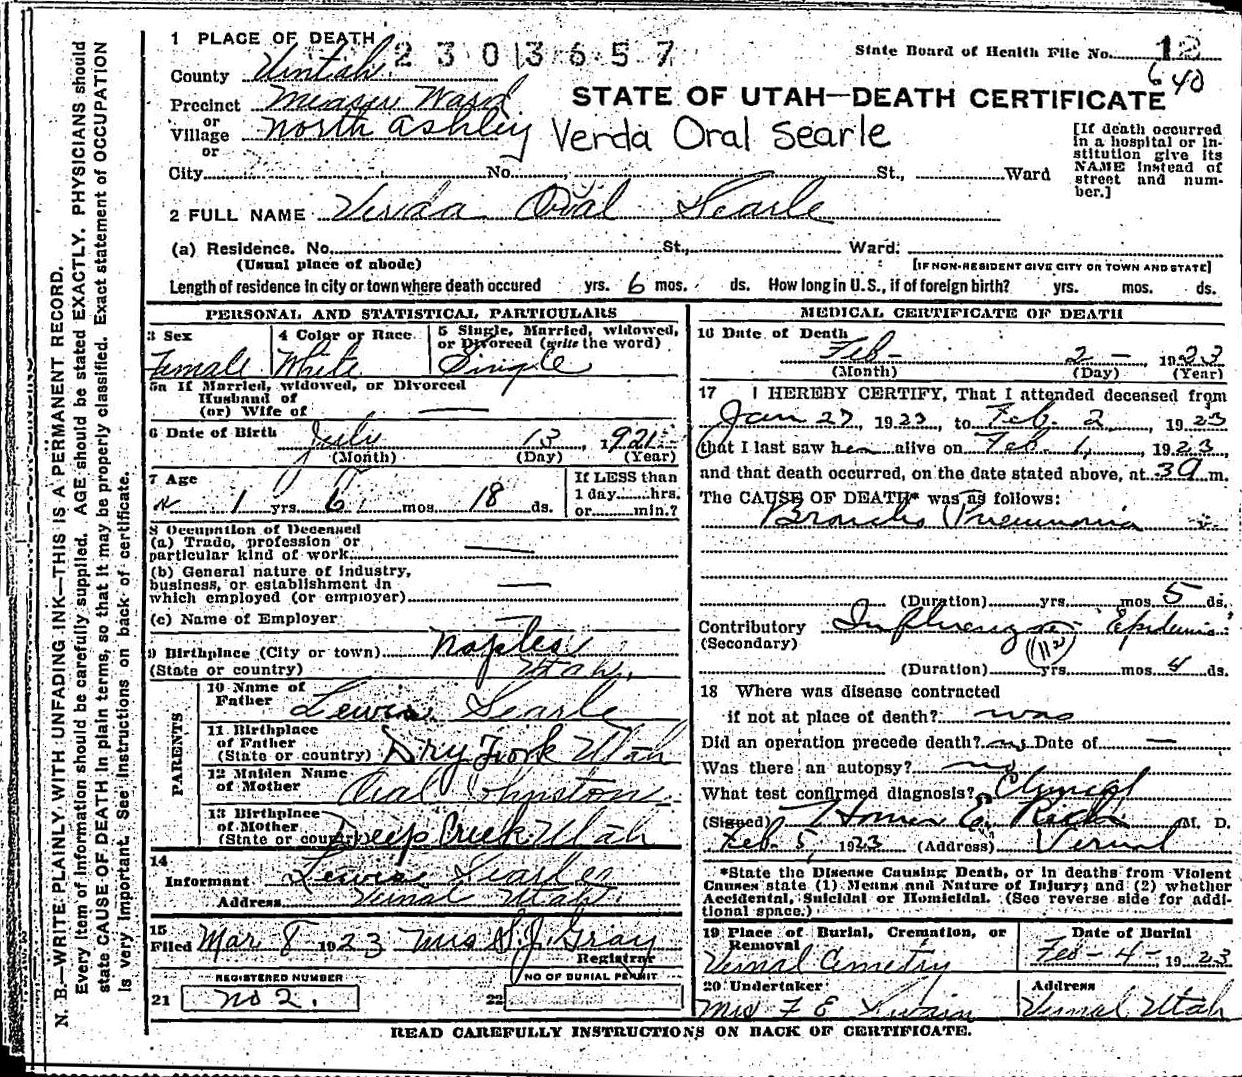 N. B.—WRITE PLAINLY WITH UNFADING INK—THIS IS A PERMANENT RECORD.
Every item of information should be carefully supplied. AGE should be stated EXACTLY. PHYSICIANS should
state CAUSE OF DEATH in plain terms, so that it may be properly classified. Exact statement of OCCUPATION
is very important. See instructions on back of certificate.
1 PLACE OF DEATH
2 3 0 1 3 6 5 7
State Board of Health File No. 12
640
County Uintah
Precinct Ward
or
Village North Ashley
or
STATE OF UTAH—DEATH CERTIFICATE
Verda Oral Searle
[If death occurred
in a hospital or in-
stitution give its
NAME instead of
street and num-
ber.]
City No. St., Ward
2 FULL NAME Verda Oral Searle
(a) Residence. No. St., Ward.
(Usual place of abode) [IF NON-RESIDENT GIVE CITY OR TOWN AND STATE]
Length of residence in city or town where death occured yrs. 6 mos. ds. How long in U.S., if of foreign birth? yrs. mos. ds.
PERSONAL AND STATISTICAL PARTICULARS
3 Sex Female
4 Color or Race White
5 Single, Married, widowed,
or Divorced (write the word)
Single
5a If Married, widowed, or Divorced
Husband of
(or) Wife of —
6 Date of Birth July 13, 1921
(Month) (Day) (Year)
7 Age 1 yrs. 6 mos. 18 ds.
If LESS than
1 day hrs.
or min.?
8 Occupation of Deceased
(a) Trade, profession or
particular kind of work —
(b) General nature of industry,
business, or establishment in
which employed (or employer) —
(c) Name of Employer
9 Birthplace (City or town) Naples
(State or country) Utah.
PARENTS
10 Name of
Father Lewis Searle
11 Birthplace
of Father
(State or country) Dry Fork Utah
12 Maiden Name
of Mother Oral Johnston
13 Birthplace
of Mother
(State or country) Deep Creek Utah
14
Informant Lewis Searle
Address Vernal Utah.
15
Filed Mar 8 1923 Mrs S. J. Gray
Registrar
REGISTERED NUMBER
21 No 2.
NO OF BURIAL PERMIT
22
MEDICAL CERTIFICATE OF DEATH
16 Date of Death
Feb— 2— 1923
(Month) (Day) (Year)
17 I HEREBY CERTIFY, That I attended deceased from
Jan 27, 1923, to Feb. 2, 1923
that I last saw her alive on Feb. 1, 1923,
and that death occurred, on the date stated above, at 3 a m.
The CAUSE OF DEATH* was as follows:
Broncho Pneumonia
(Duration) yrs. mos. 5 ds.
Contributory Influenza Epidemic
(Secondary)
(112)
(Duration) yrs. mos. 4 ds.
18 Where was disease contracted
if not at place of death? was
Did an operation precede death? no Date of —
Was there an autopsy? no
What test confirmed diagnosis? Clinical
(Signed) Homer E. Rich M. D.
Feb. 5, 1923 (Address) Vernal
*State the Disease Causing Death, or in deaths from Violent
Causes state (1) Means and Nature of Injury; and (2) whether
Accidental, Suicidal or Homicidal. (See reverse side for addi-
tional space.)
19 Place of Burial, Cremation, or
Removal
Vernal Cemetry
Date of Burial
Feb— 4— 1923
20 Undertaker
Mrs F E Swain
Address
Vernal Utah
READ CAREFULLY INSTRUCTIONS ON BACK OF CERTIFICATE.